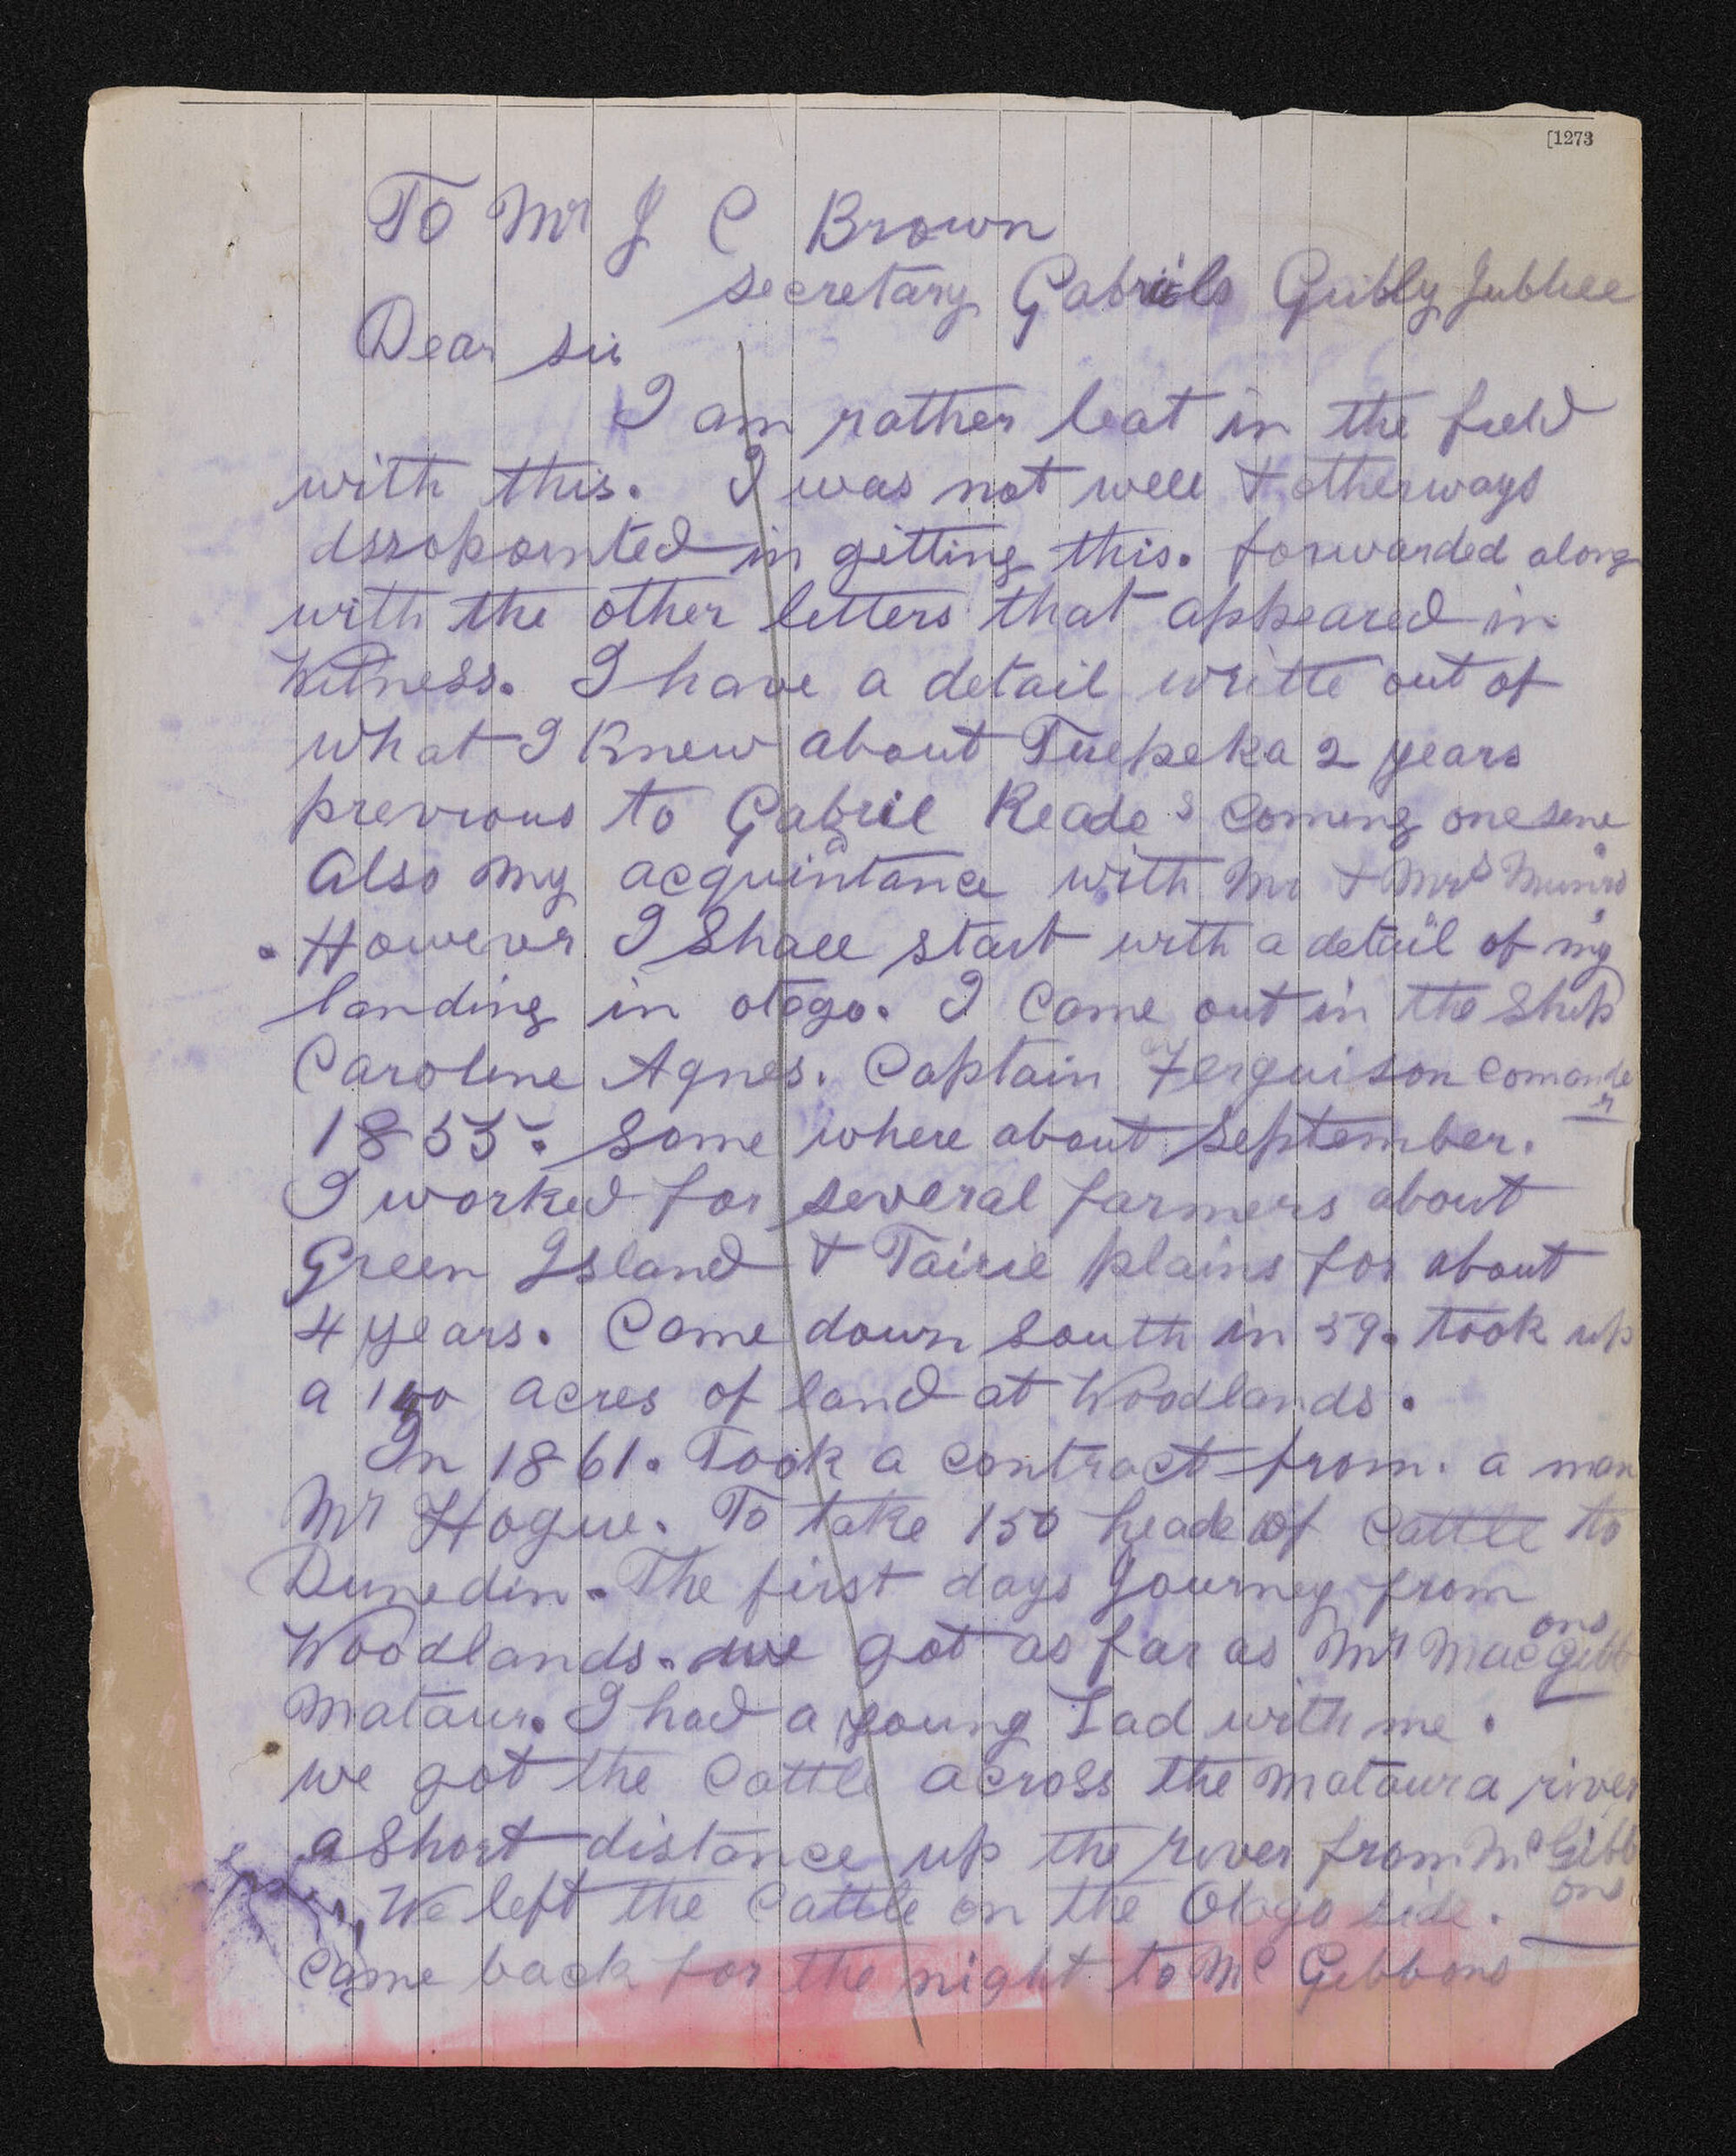 [1273
To Mr J C Brown
secretary Gabriels Gully Jubilee
Dear sir
I am rather leat in the field
with this. I was not well & otherways
dssopointed in gitting this. forwarded along
with the other letters that appeared in
Witness. I have a detail writte out of
what I Knew about Tuepeka 2 years
previous to Gabriel Reade's Comeng
Also my acquaintance with Mr & Mrs Munro
However I Shall start with a detail of my
landing in otago. I Came out in the Ship
Caroline Agnes. Captain Ferguison Comander
1855. Some where about September.
I worked for several farmers about
Green Island & Tairie plains for about
4 years. Came down South in 59. took up
a 100 acres of land at Woodlands.
In 1861. Took a Contract from. a man
Mr Hogue. To take 150 heade of Cattle to
Dunedin. The first days Journey from
Woodlands. we got as far as Mr MacGibbons
Mataur. I had a young Lad with me.
we got the Cattle across the Mataura river
a Short distance up the river from McGibbons
We left the Cattle on the Otago side.
Came back for the night to Mc Gibbons